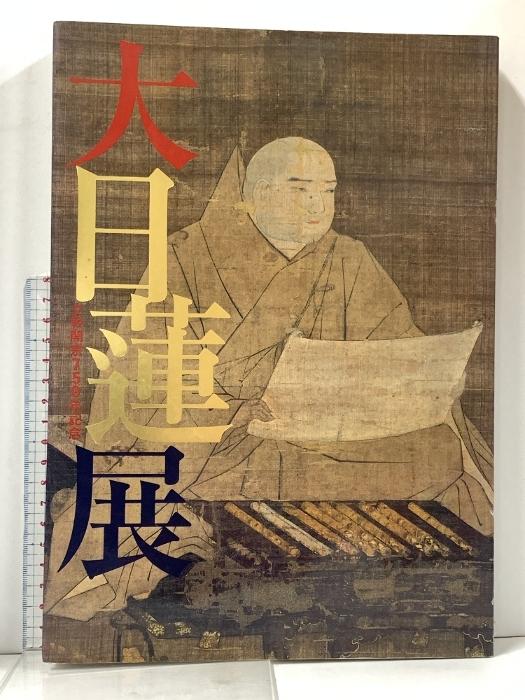 大日蓮展
立教開宗750年記念